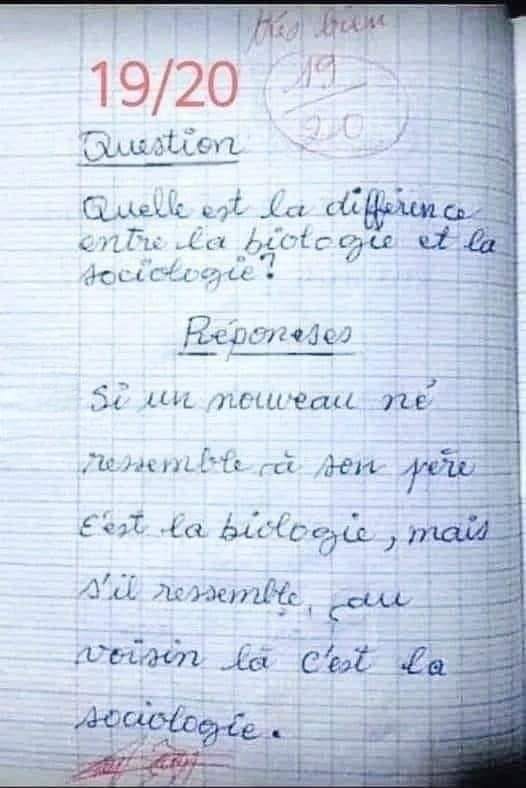 très bien
19/20
19
20
Question
Quelle est la différence
entre la biologie et la
sociologie?
Réponses
Si un nouveau né
ressemble à son père
c'est la biologie, mais
s'il ressemble, au
voisin là c'est la
sociologie.